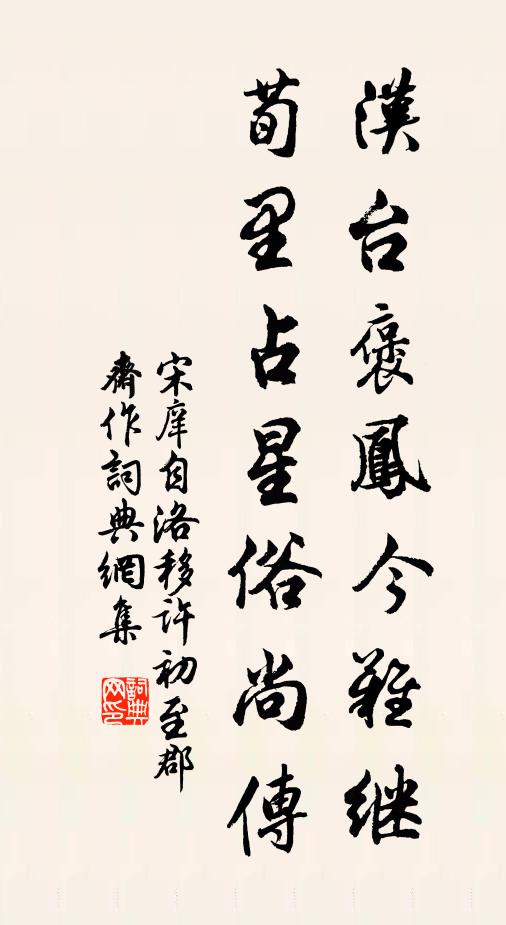 漢台褒鳳今難继
荀里占星俗尚傳
宋庠自洛移許初至郡
齋作詞典網集
詞典网印